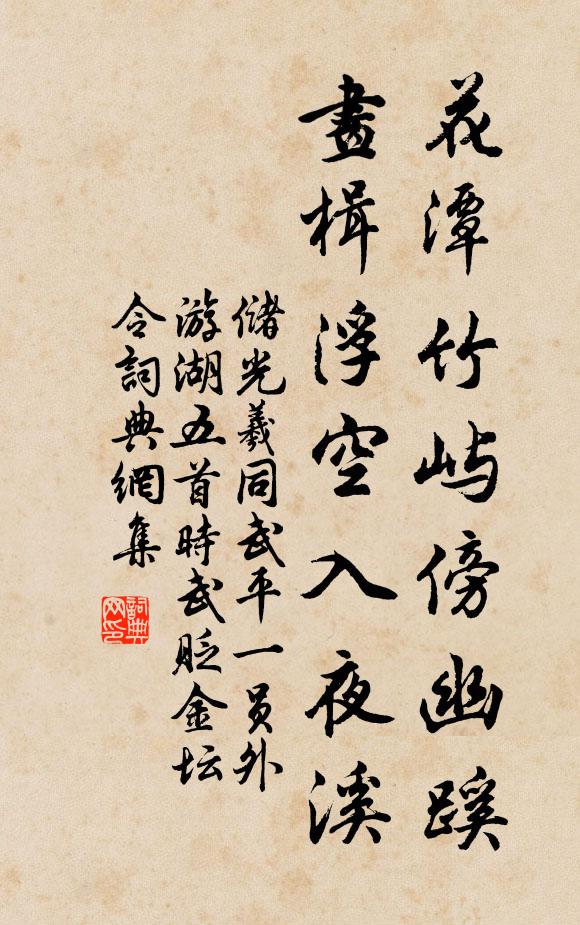 花潭竹屿傍幽蹊
畫楫浮空入夜溪
儲光羲同武平一员外
游湖五首時武贬金坛
令詞典網集
詞典网印